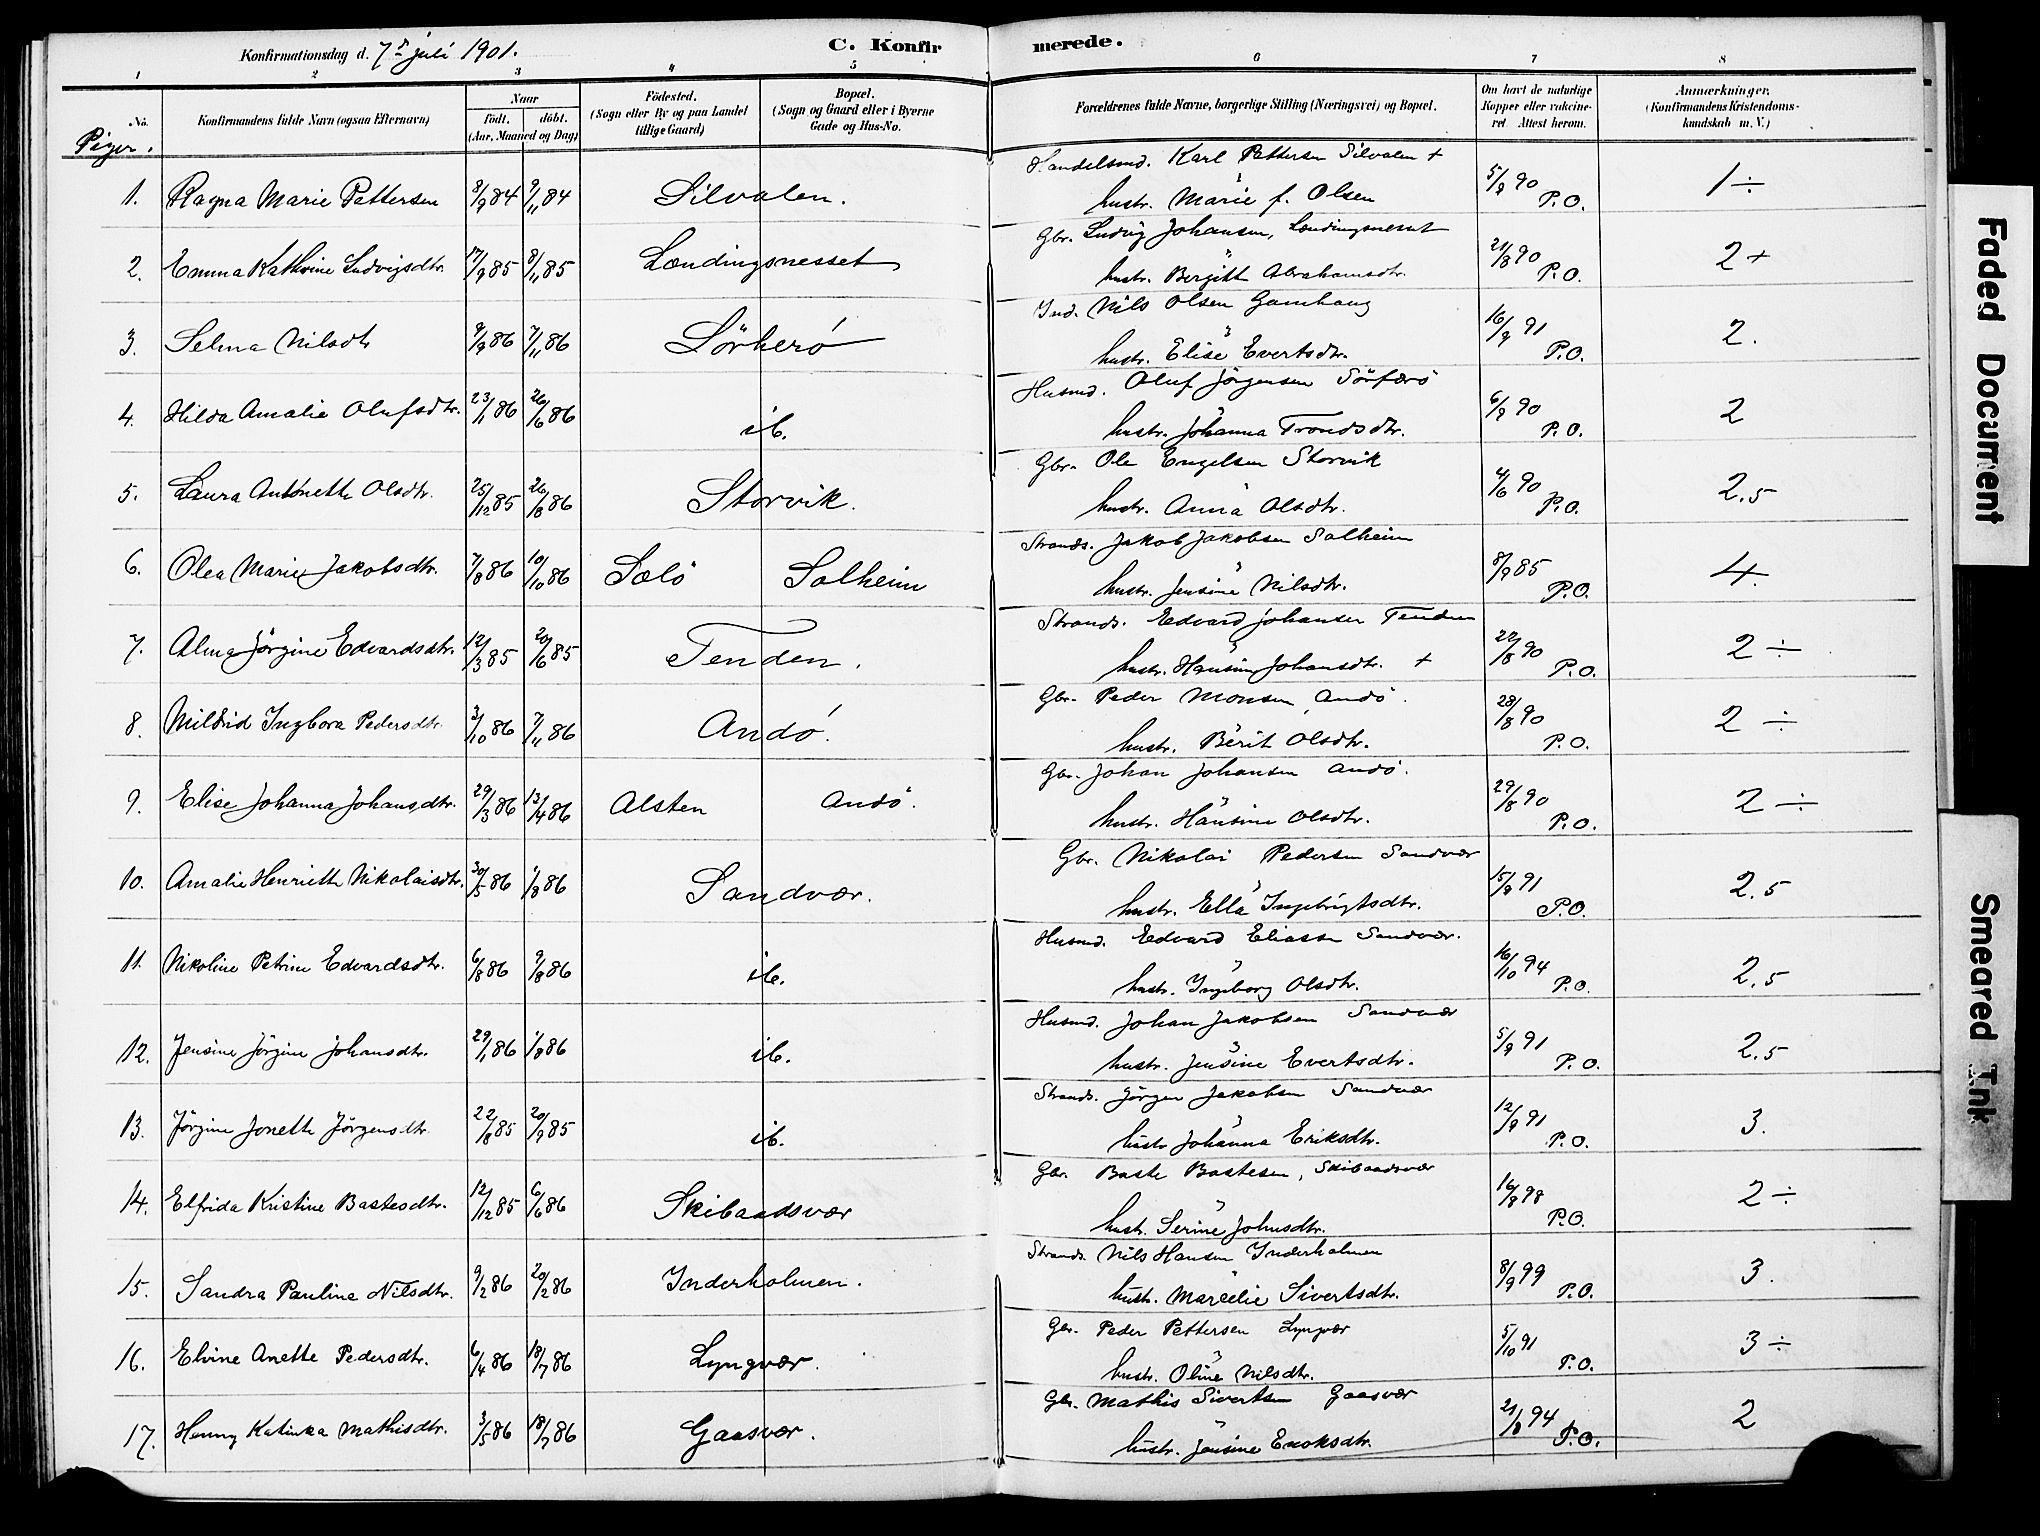 Konfirmationsdag d. 7de juli 1901.
C. Konfirmerede.
1 2 3 4 5 6 7 8
No. Konfirmandens fulde Navn (ogsaa Efternavn) Naar født. døbt. (Aar, Maaned og Dag) Fødested. (Sogn eller By og paa Landet tillige Gaard) Bopæl. (Sogn og Gaard eller i Byerne Gade og Hus-No. Forældrenes fulde Navne, borgerlige Stilling (Næringsvei) og Bopæl. Om havt de naturlige Kopper eller vakcineret Attest herom. Anmærkninger. (Konfirmandens Kristendomskundskab m. V.)
Piger.
1. Ragna Marie Pettersen 8/9 84 9/11 84 Silvalen. Handelsmd. Karl Pettersen Silvalen + hustr. Marie f. Olsen 5/9 90 P.O. 1 ÷
2. Emma Kathrine Ludvigsdtr. 17/9 85 8/11 85 Lændingsnesset Gbr. Ludvig Johansen, Lændingsnesset hustr. Bergitt Abrahamsdtr. 21/8 90 P.O. 2 +
3. Selma Nilsdtr 9/9 86 7/11 86 Sörherö Ind. Nils Olsen Gamhaug hustr. Elise Evertsdtr. 16/9 91 P.O. 2.
4. Hilda Amalie Olufsdtr. 23/1 86 26/6 86 ib. Husmd. Oluf Jörgensen Sörherö hustr. Johanna Trondsdtr. 6/9 90 P.O. 2
5. Laura Antonette Olsdtr. 25/12 85 26/8 86 Storvik. Gbr. Ole Engelsen Storvik hustr. Anna Olsdtr. 4/6 90 P.O. 2.5
6. Olea Marie Jakobsdtr. 7/8 86 10/10 86 Salö Solheim Strands. Jakob Jakobsen Solheim hustr. Jensine Nilsdtr. 8/9 85 P.O. 4.
7. Alma Jörgine Edvardsdtr. 12/3 85 20/6 85 Tenden. Strands. Edvard Johansen Tenden hustr. Hansine Johansdtr. + 22/8 90 P.O. 2 ÷
8. Mildrid Ingbora Pedersdtr. 3/10 86 7/11 86 Andö. Gbr. Peder Monsen, Andö. hustr. Berit Olsdtr. 28/8 90 P.O. 2 ÷
9. Elise Johanna Johansdtr. 29/3 86 13/4 86 Alsten Andö. Gbr. Johan Johansen Andö. hustr. Hansine Olsdtr. 29/8 90 P.O. 2 ÷
10. Amalie Henriette Nikolaisdtr. 30/5 86 1/8 86 Sandvær. Gbr. Nikolai Pedersen Sandvær hustr. Ella Ingebrigtsdtr. 15/9 91 P.O. 2.5
11. Nikoline Petrine Edvardsdtr. 6/8 86 9/8 86 ib. Husmd. Edvard Eliassen Sandvær. hustr. Ingeborg Olsdtr. 16/10 94 P.O. 2.5
12. Jensine Jörgine Johansdtr. 29/1 86 1/8 86 ib. Husmd. Johan Jakobsen Sandvær hustr. Jensine Evertsdtr. 5/9 91 P.O. 2.5
13. Jörgine Jonette Jörgensdtr. 22/8 85 20/9 85 ib. Strands. Jörgen Jakobsen Sandvær hustr Johanna Eriksdtr. 12/9 91 P.O. 3.
14. Elfrida Kristine Bastesdtr. 12/12 85 6/6 86 Skibaadsvær Gbr. Baste Bastesen, Skibaadsvær hustr. Serine Johnsdtr. 16/8 98 P.O. 2 ÷
15. Sandra Pauline Nilsdtr. 9/2 86 20/2 86 Inderholmen. Strands. Nils Hansen Inderholmen hustr. Marcelie Sivertsdtr. 8/9 99 P.O. 3.
16. Elvine Anette Pedersdtr. 6/4 86 18/7 86 Lyngvær. Gbr. Peder Pettersen Lyngvær hustr. Oline Nilsdtr. 5/10 91 P.O. 3 ÷
17. Henny Katinka Mathisdtr. 3/5 86 18/7 86 Gaasvær. Gbr. Mathis Sivertsen Gaasvær hustr. Jensine Enoksdtr. 21/8 94 P.O. 2
Faded Document
Smeared Ink